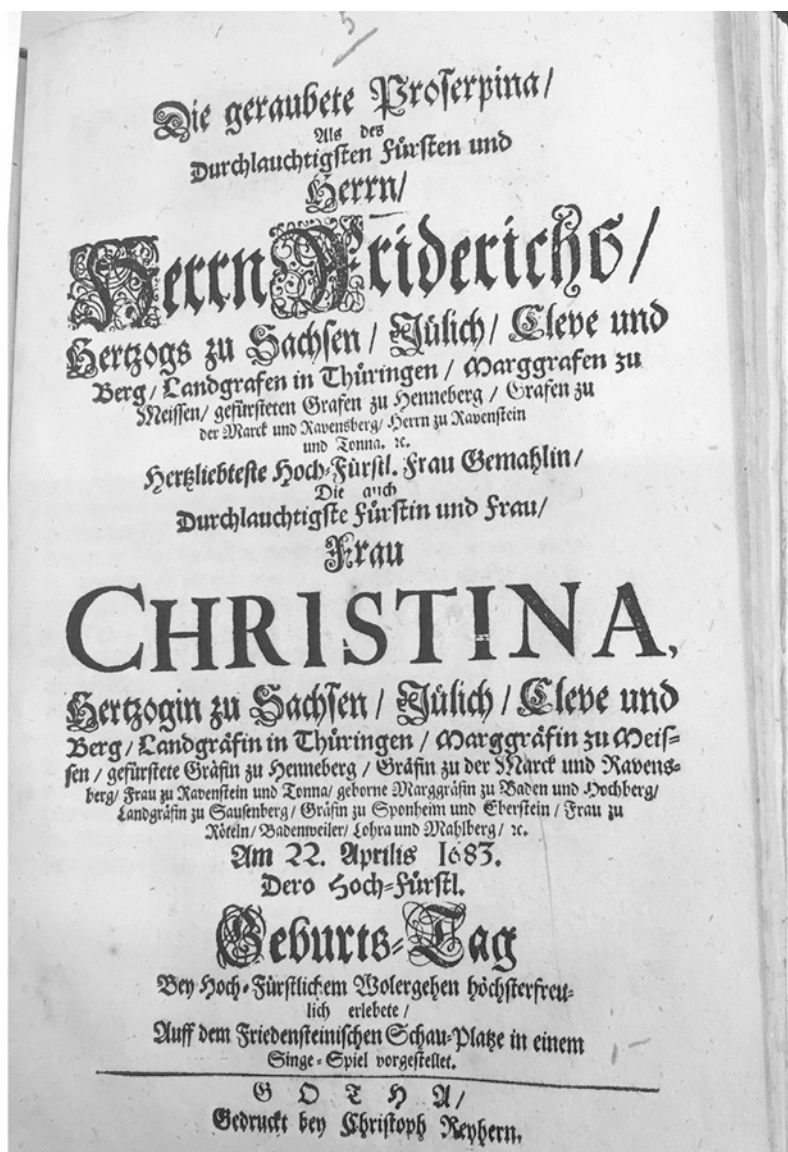 5
Die geraubete Proserpina/
Als des
Durchlauchtigsten Fürsten und
Herrn/
Herrn Friderichs/
Hertzogs zu Sachsen / Jülich / Cleve und
Berg / Landgrafen in Thüringen / Marggrafen zu
Meissen / gefürsteten Grafen zu Henneberg / Grafen zu
der Marck und Ravensberg / Herrn zu Ravenstein
und Tonna. ꝛc.
Hertzliebteste Hoch-Fürstl. Frau Gemahlin /
Die auch
Durchlauchtigste Fürstin und Frau /
Frau
CHRISTINA,
Hertzogin zu Sachsen / Jülich / Cleve und
Berg / Landgräfin in Thüringen / Marggräfin zu Meis-
sen / gefürstete Gräfin zu Henneberg / Gräfin zu der Marck und Ravens-
berg / Frau zu Ravenstein und Tonna / geborne Marggräfin zu Baden und Hochberg /
Landgräfin zu Sausenberg / Gräfin zu Sponheim und Eberstein / Frau zu
Röteln / Badenweiler / Lohra und Mahlberg / ꝛc.
Am 22. Aprilis 1683.
Dero Hoch-Fürstl.
Geburts-Tag
Bey Hoch-Fürstlichem Wolergehen höchsterfreu-
lich erlebete /
Auff dem Friedensteinischen Schau-Platze in einem
Singe-Spiel vorgestellet.
GOTHA /
Gedruckt bey Christoph Reyhern.